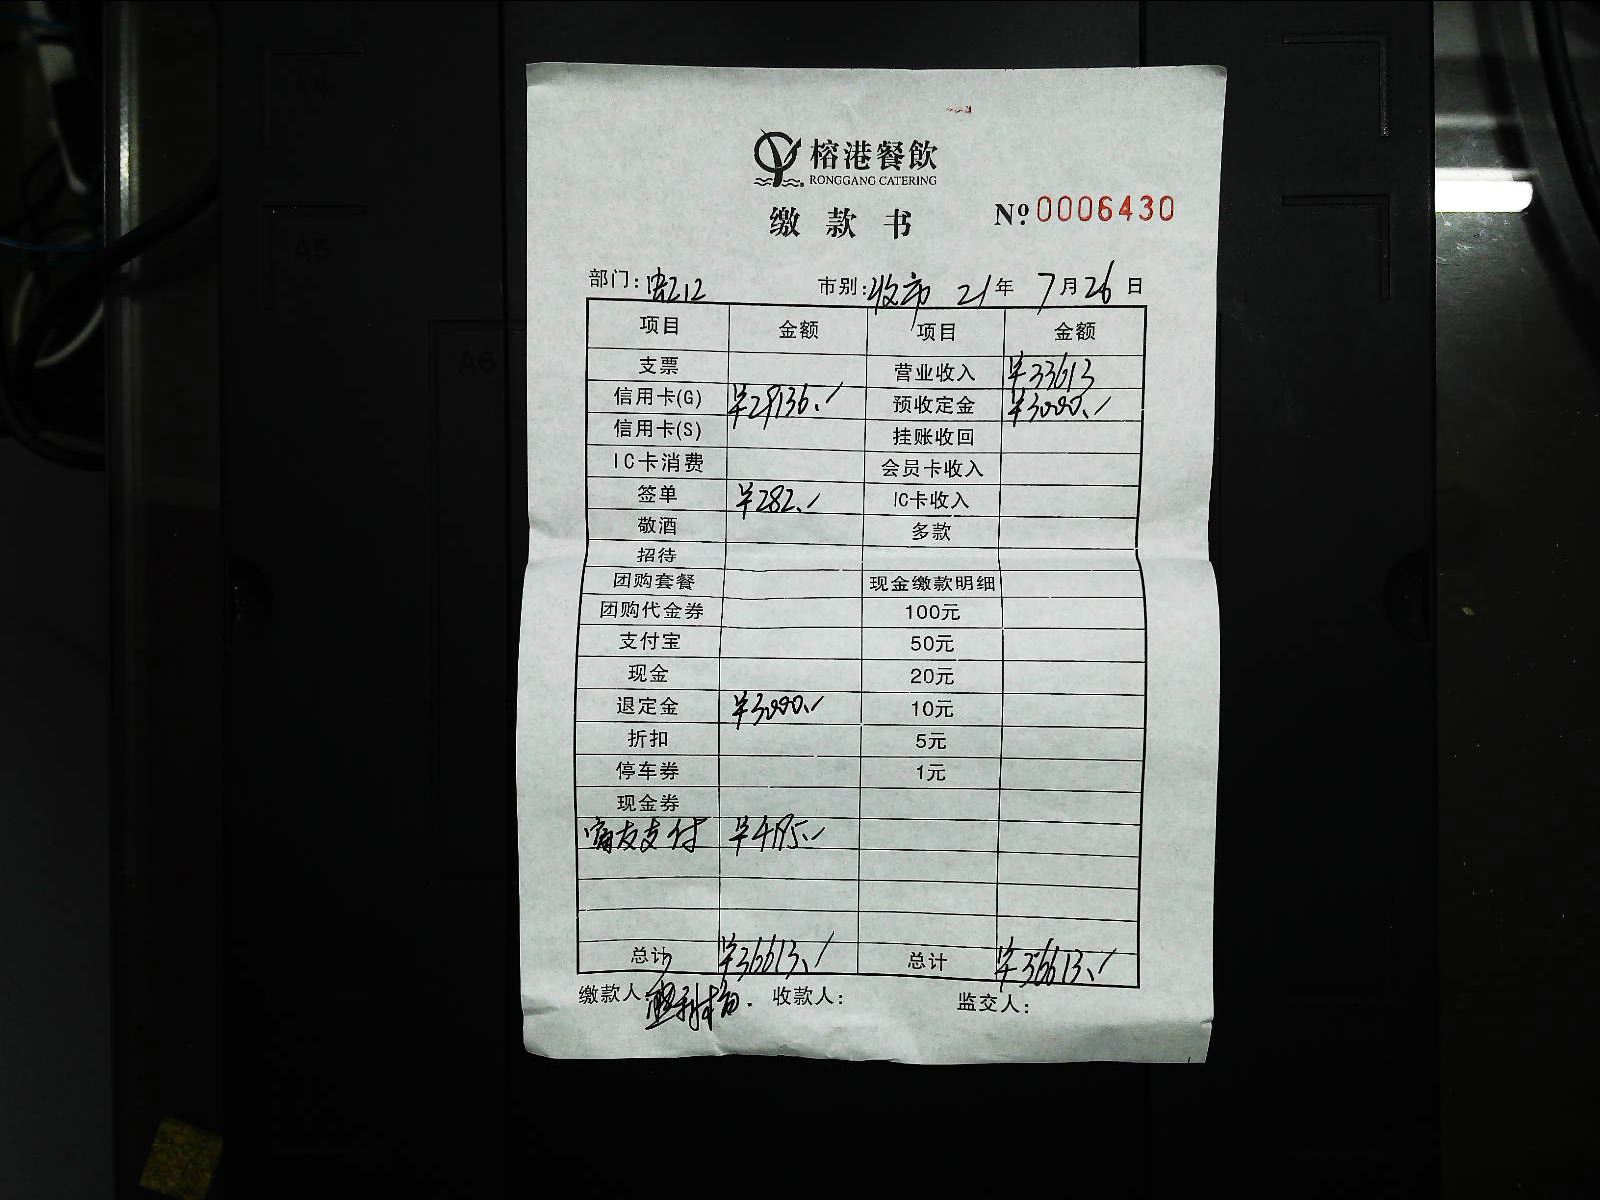 榕港餐飲
RONGGANG CATERING
缴款书 Nº 0006430
部门: 市别:收市 21年 7月26日
项目 金额 项目 金额
支票 营业收入 ¥33613
信用卡(G) ¥29136.✓ 预收定金 ¥3000.✓
信用卡(S) 挂账收回
IC卡消费 会员卡收入
签单 ¥282.✓ IC卡收入
敬酒 多款
招待
团购套餐 现金缴款明细
团购代金券 100元
支付宝 50元
现金 20元
退定金 ¥3000.✓ 10元
折扣 5元
停车券 1元
现金券
富友支付 ¥4195.✓
总计 ¥36613.✓ 总计 ¥36613.✓
缴款人: 收款人: 监交人:
A5
A6